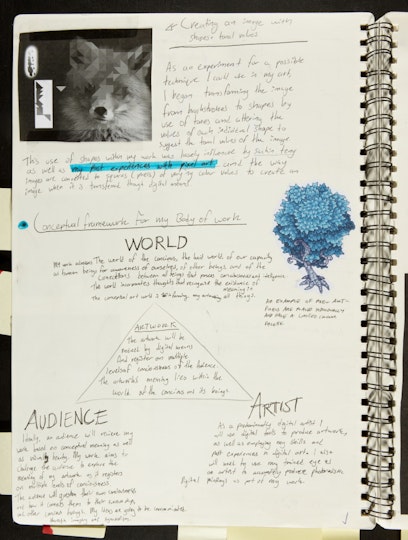 Creating an image with
shapes + tonal values
As an experiment for a possible
technique I could use in my art,
I began transforming the image
from brushstrokes to shapes by
use of tones and altering the
values of each individual shape to
suggest the tonal values of the image.
This use of shapes within my work was largely influenced by
as well as my past experiences with pixel art and the way
images are converted to squares (pixels) of varying colour values to create an
image when it is transferred through digital means
Conceptual framework for my Body of work
WORLD
My work addresses The world of the conscious, the
as human beings for awareness of ourselves, of other beings and of the
connections between of beings that possess consciousness and intelligence
The world incorporates thoughts that recognise the existence of
meaning in
all things.
AN EXAMPLE OF PIXEL ART
PIXELS ARE PLACED INDIVIDUALLY
AND HAVE A LIMITED COLOUR
PALETTE
ARTWORK
The artwork will be
created by digital means
And register on multiple
levels of consciousness of the audience
The artworks meaning lies within the
world of the conscious and its beings
AUDIENCE
Ideally, an audience will receive my
work based on conceptual meaning as well
as visual beauty. My work aims to
challenge the audience to explore the
meaning of my artwork as it registers
on multiple levels of consciousness
The audience will question their own consciousness
and how it connects them to their
or other conscious beings. My ideas are going to be communicated
through imagery and symbolism
ARTIST
As a predominantly digital artist I
will use digital tools to produce artworks,
as well as employing my skills and
past experiences in digital art. I also
will need to use my trained eye as
an artist to accurately produce photorealism
Digital Paintings as part of my work.